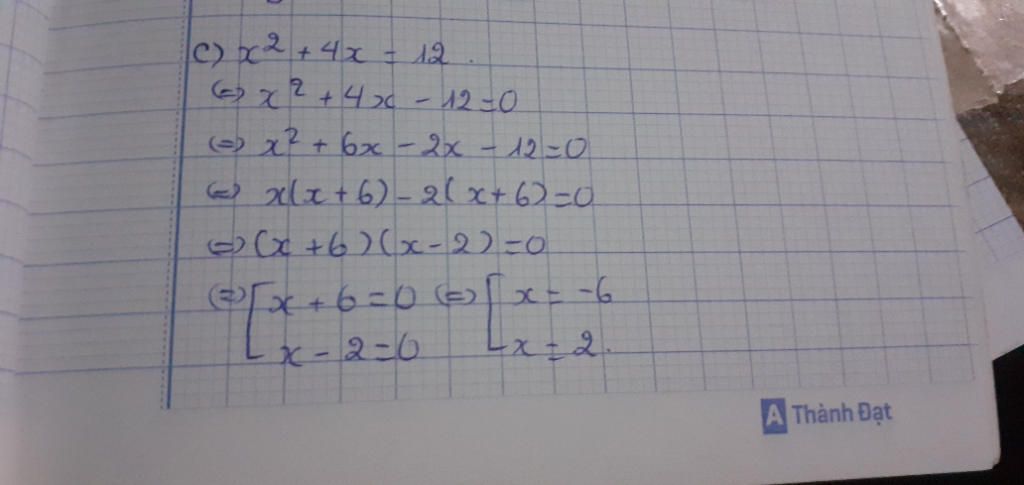 c) x² + 4x = 12.
⇔ x² + 4x - 12 = 0
⇔ x² + 6x - 2x - 12 = 0
⇔ x(x + 6) - 2(x + 6) = 0
⇔ (x + 6)(x - 2) = 0
⇔ [ x + 6 = 0 ⇔ [ x = -6
x - 2 = 0 x = 2.
A Thành Đạt